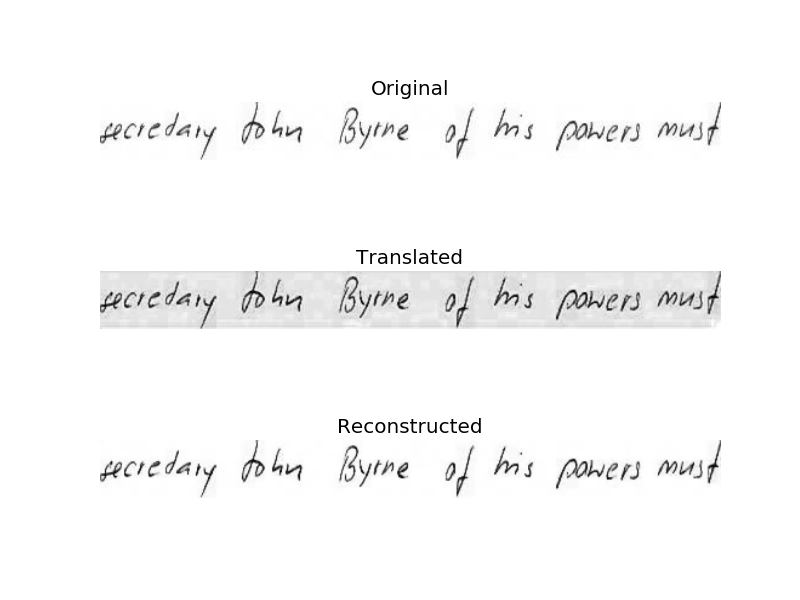 Original
secretary John Byrne of his powers must
Translated
secretary John Byrne of his powers must
Reconstructed
secretary John Byrne of his powers must